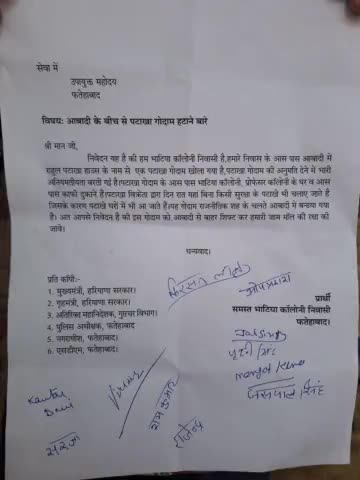 सेवा में
उपायुक्त महोदय
फतेहाबाद
विषयः आबादी के बीच से पटाखा गोदाम हटाने बारे
श्री मान जी,
निवेदन यह है की हम भाटिया कॉलोनी निवासी है,हमारे निवास के आस पास आबादी में
राहुल पटाखा हाउस के नाम से एक पटाखा गोदाम खोला गया है,पटाखा गोदाम की अनुमति देने में भारी
अनियमतीयता बरती गई है।पटाखा गोदाम के आस पास भाटिया कॉलोनी, प्रोफेसर कॉलोनी के घर व आस
पास काफी दुकाने हैं।पटाखा विक्रेता द्वारा दिन रात यहां बिना किसी सुरक्षा के पटाखे भी चलाए जाते है
जिसके कारण पटाखे घरों में भी आ जाते हैं।यह गोदाम राजनीतिक शह के चलते आबादी में बनाया गया
है। अत आपसे निवेदन है की इस गोदाम को आबादी से बाहर शिफ्ट कर हमारी जान मॉल की रक्षा की
जावे।
धन्यवाद।
प्रति कॉपीः-
1. मुख्यमंत्री, हरियाणा सरकार)
2. गृहमंत्री, हरियाणा सरकार)
3. अतिरिक्त महानिदेशक, गुप्तचर विभाग)
4. पुलिस अधीक्षक, फतेहाबाद
5. नगराधीश, फतेहाबाद)
6. एसडीएम, फतेहाबाद)
प्रार्थी
समस्त भाटिया कॉलोनी निवासी
फतेहाबाद।
ओमप्रकाश
पृथ्वी सिंह
जसपाल सिंह
राम कुमार
राजेन्द्र